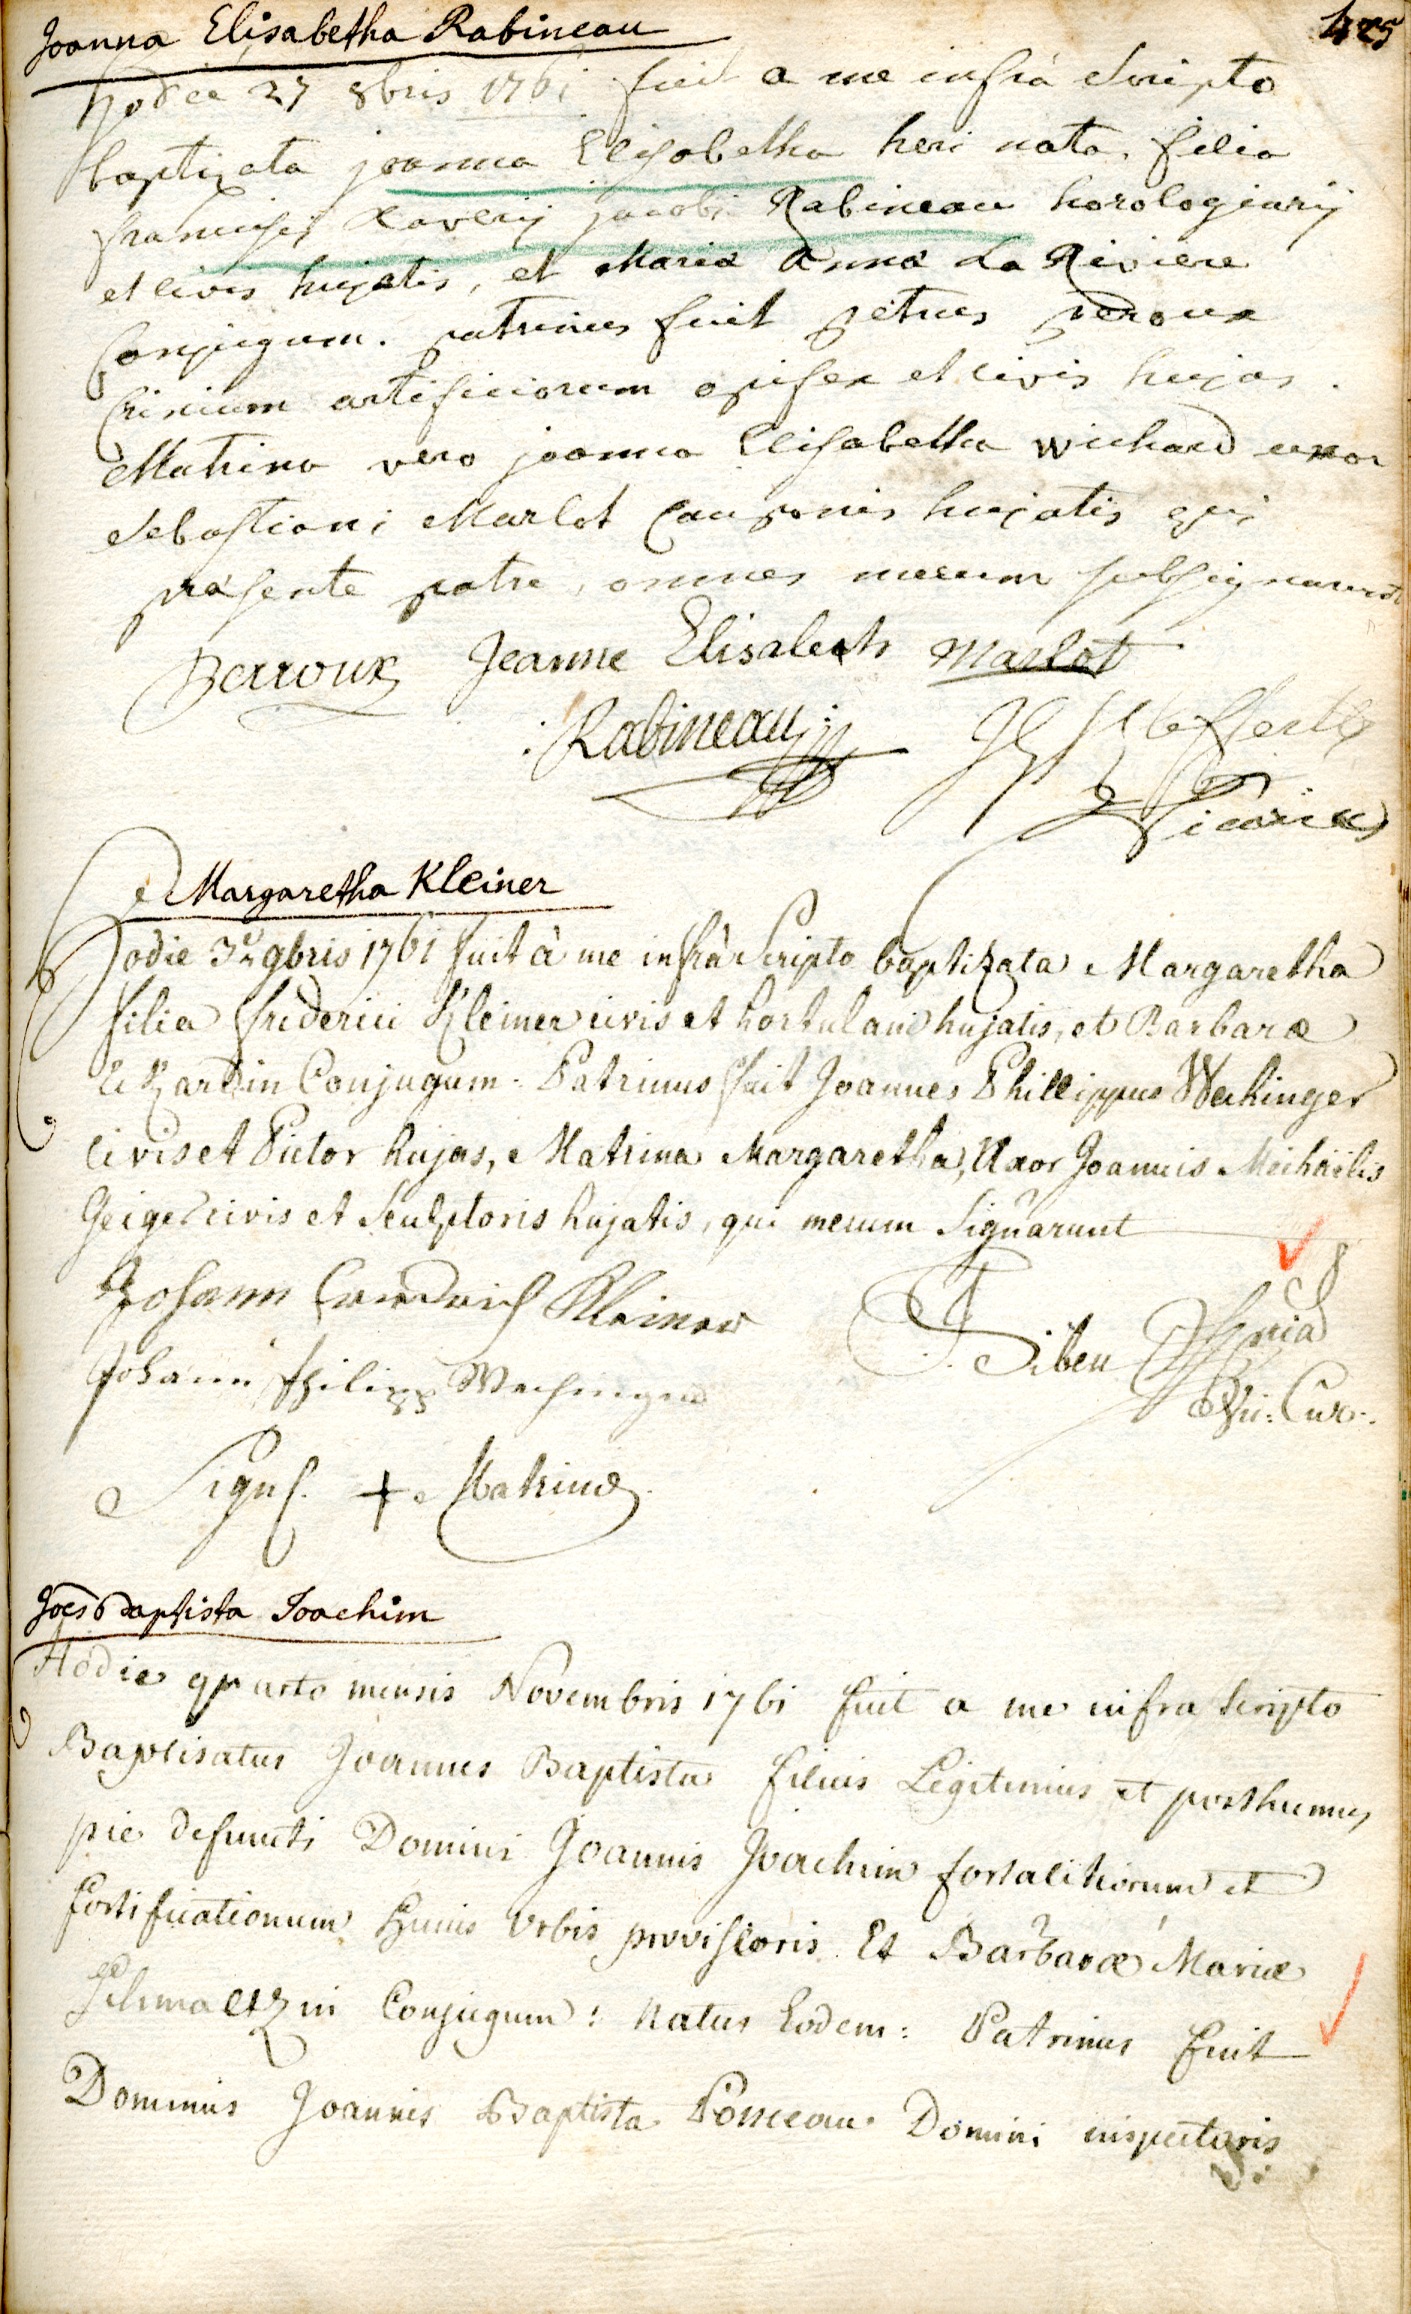 Joanna Elisabetha Rabineau
425
hodie 27 8bris 1761 fuit a me infrà scripto
baptizata joanna Elisabetha heri nata, filia
francisci Xaverij jacobi Rabineau horologiarij
et civis hujatis, et Maria Anna La Riviere
Conjugum. patrinus fuit petrus peroux
Crinium artificiorum opifex et civis hujas.
Matrina vero joanna Elisabetha wichard uxor
Sebastiani Marlot Cauponis hujatis qui
præsente patre, omnes mecum subsignarunt
Perroux Jeanne Elisabeth Marlot
Rabineau
Vicarius
Margaretha Kleiner
Hodie 3 9bris 1761 fuit à me infrà Scripto baptizata Margaretha
filia friderici Kleiner civis et hortulani hujatis, et Barbaræ
Conjugum. Patrinus fuit Joannes Phillippus Wachinger
Civis et Pictor hujas, Matrina Margaretha, Uxor Joannis Michaëlis
Geiger civis et Sculptoris hujatis, qui mecum Signarunt
Johann Friedrich Kleiner
Siben
Johann Philipp Wachinger
Vic: Cur:
Sign + Matrinæ
Joes Baptista Joachim
Hodie quarto mensis Novembris 1761 fuit a me infra scripto
Baptisatus Joannes Baptista filius Legitimus et posthumus
pie defuncti Domini Joannis Joachim fortalitiorum et
fortificationum hujus Urbis provisoris Et Barbaræ Mariæ
Schmaltzin Conjugum: natus Eodem: Patrinus fuit
Dominus Joannes Baptista Ponceau Domini inspectoris